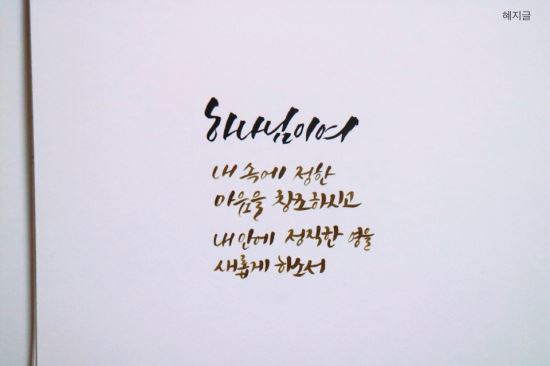 혜지글
하나님이여
내 속에 정한
마음을 창조하시고
내 안에 정직한 영을
새롭게 하소서